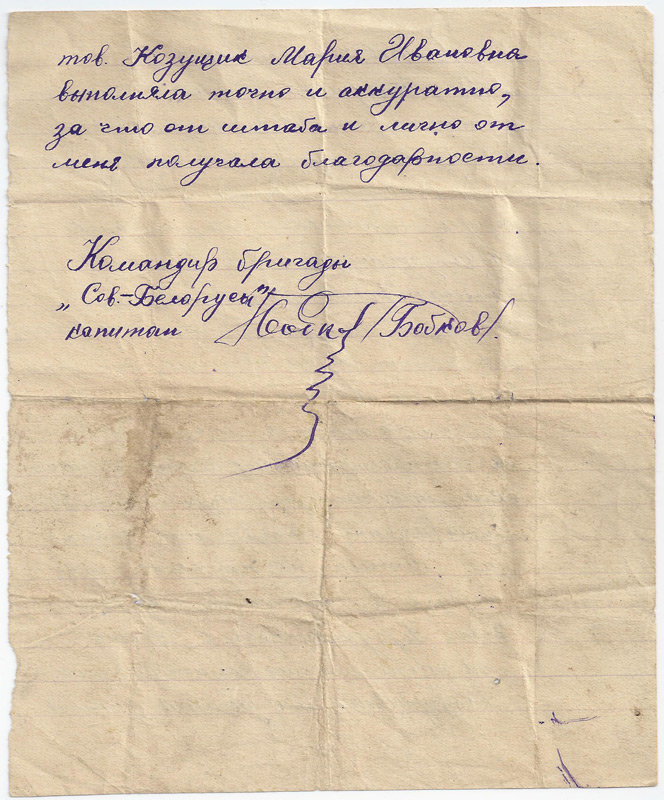 тов. Козущик Мария Ивановна
выполняла точно и аккуратно,
за что от штаба и лично от
меня получала благодарности.
Командир бригады
„Сов.-Белоруси"
капитан /Бобков/.